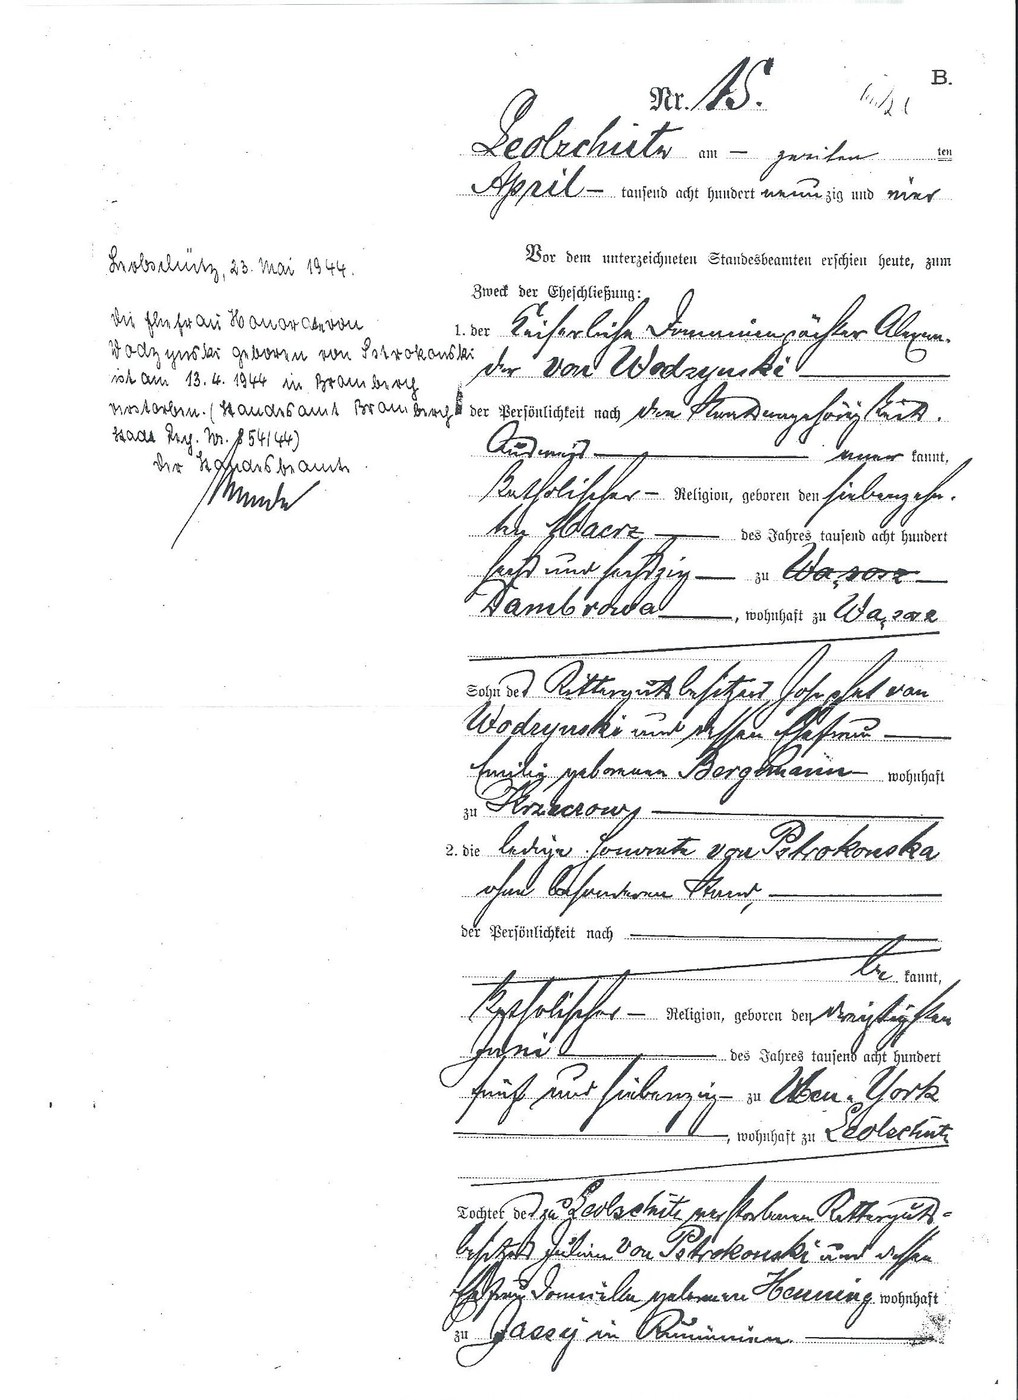 B.
Nr. 15.
Leobschütz am – zweiten ten
April – tausend acht hundert neunzig und vier
Vor dem unterzeichneten Standesbeamten erschien heute, zum
Zweck der Eheschließung:
1. der Kaiserliche Domainenpächter Alexan-
der von Wodzynski
der Persönlichkeit nach
kannt,
katholischer – Religion, geboren den siebenzehn-
ten Maerz des Jahres tausend acht hundert
sechs und sechszig zu
Dambrowa, wohnhaft zu Wąsosz
Sohn des Rittergutsbesitzers Josephat von
Wodzynski und dessen Ehefrau
Emilie geborenen Bergmann wohnhaft
zu
2. die ledige Honorata von Pstrokonska
ohne besonderen Stand,
der Persönlichkeit nach
be kannt,
katholischer – Religion, geboren den dreißigsten
Juni des Jahres tausend acht hundert
fünf und siebenzig – zu New-York
, wohnhaft zu Leobschütz
Tochter des zu Leobschütz verstorbenen Ritterguts-
besitzers Julian von Pstrokonski und dessen
Ehefrau Domicilla geborenen Henning wohnhaft
zu Jassy in Rumänien.
Leobschütz, 23. Mai 1944.
Die Ehefrau Honorata von
Wodzynski geboren von Pstrokonski
ist am 13.4.1944 in Bromberg
verstorben. (Standesamt Bromberg
Stadt Reg. Nr. 854/44)
Der Standesbeamte